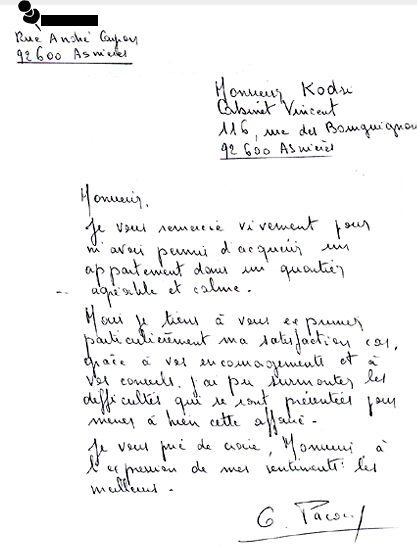 Rue André Cayron
92600 Asnières
Monsieur Kodsi
Cabinet Vincent
116, rue des Bourguignons
92600 Asnières
Monsieur,
Je vous remercie vivement pour
m'avoir permis d'acquérir un
appartement dans un quartier
agréable et calme.
Mais je tiens à vous exprimer
particulièrement ma satisfaction car,
grâce à vos encouragements et à
vos conseils, j'ai pu surmonter les
difficultés qui se sont présentées pour
mener à bien cette affaire.
Je vous prie de croire, Monsieur, à
l'expression de mes sentiments les
meilleurs.
G.